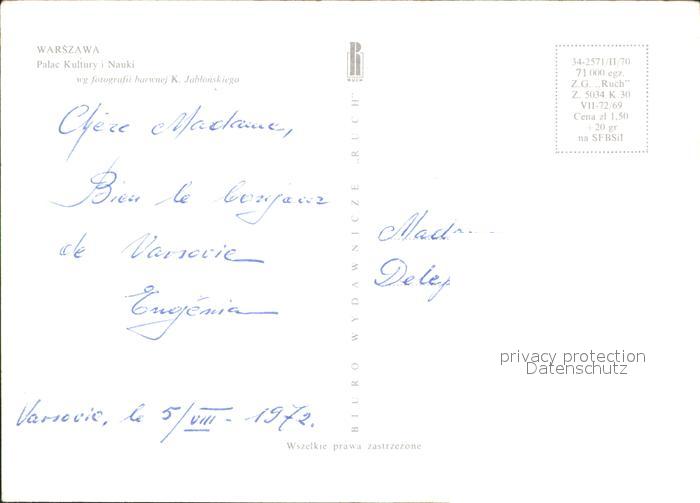 WARSZAWA
Pałac Kultury i Nauki
wg fotografii barwnej K. Jabłońskiego
RUCH
34-2571/II/70
71 000 egz.
Z.G. „Ruch"
Z. 5034 K 30
VII-72/69
Cena zł 1,50
+20 gr
na SFBSiI
Chère Madame,
Bien le bonjour
de Varsovie
Eugénia
Varsovie, le 5/VIII - 1972.
BIURO WYDAWNICZE „RUCH"
Mad
Delep
privacy protection
Datenschutz
Wszelkie prawa zastrzeżone